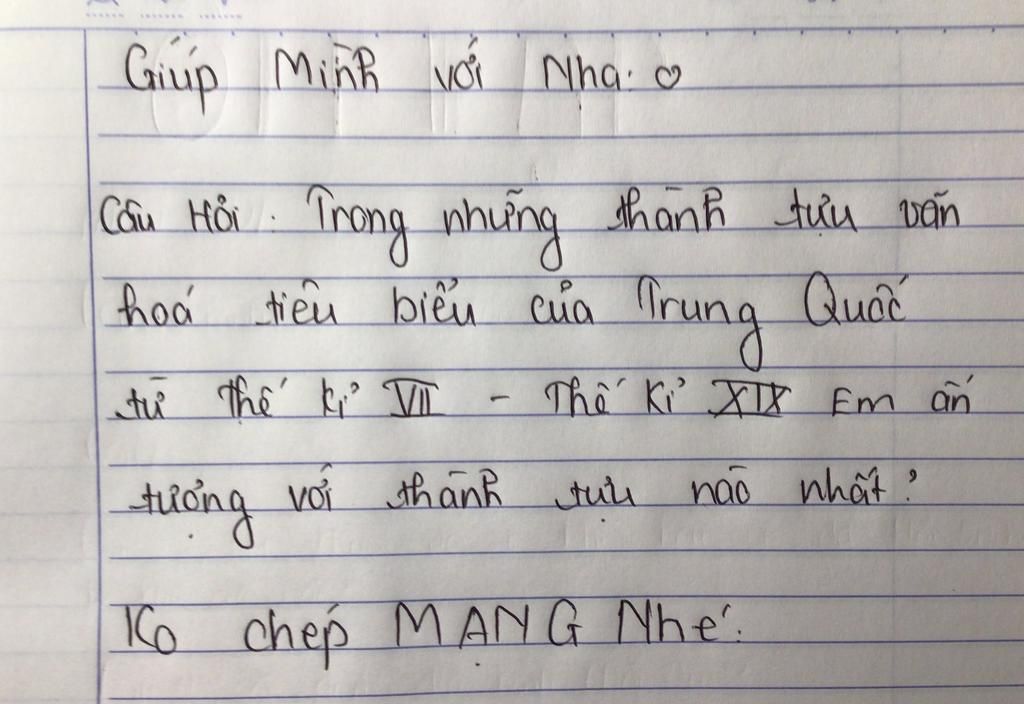 Giúp Mình với Nha. ♡
Câu Hỏi : Trong những thành tựu văn
hoá tiêu biểu của Trung Quốc
từ thế kỉ VII - Thế kỉ XIX Em ấn
tượng với thành tựu nào nhất?
Ko chép MẠNG Nhé.